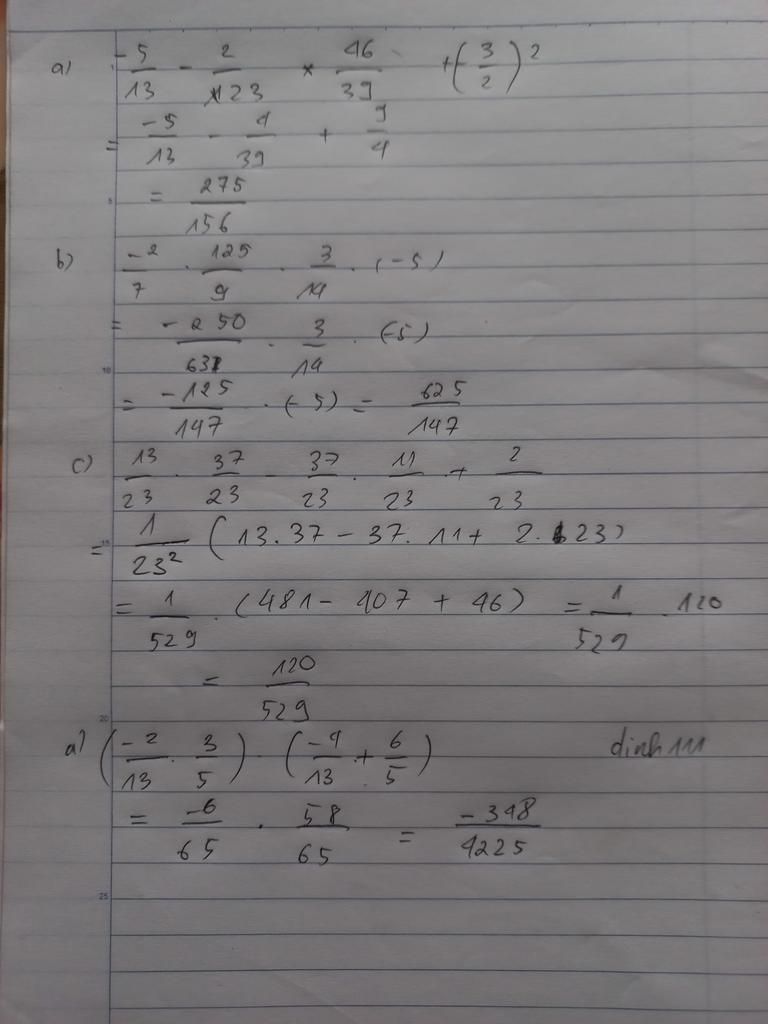 a) -5/13 - 2/23 × 46/39 + (-3/2)²
= -5/13 - 4/39 + 9/4
= 275/156
b) -2/7 . 125/9 . 3/14 . (-5)
= -250/63 . 3/14 . (-5)
= -125/147 . (-5) = 625/147
c) 13/23 . 37/23 - 37/23 . 11/23 + 2/23
= 1/23² (13.37 - 37.11 + 2.23)
= 1/529 . (481 - 407 + 46) = 1/529 . 120
= 120/529
a) (-2/13 . 3/5) . (-4/13 + 6/5) dinh111
= -6/65 . 58/65 = -348/4225
5
10
15
20
25